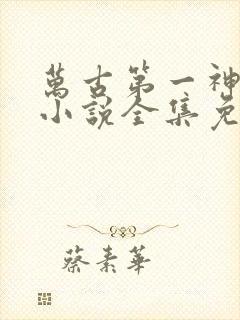 萬古第一神
小說全集免
蔡素華